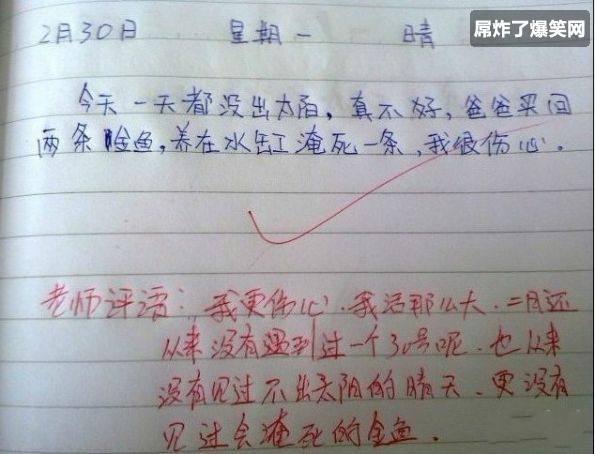 屌炸了爆笑网
2月30日 星期一 晴
今天一天都没出太阳，真不好，爸爸买回
两条金鱼，养在水缸淹死一条，我很伤心。
老师评语：我更伤心．我活那么大．二月还
从来没有遇到过一个30号呢．也从来
没有见过不出太阳的晴天．更没有
见过会淹死的金鱼．